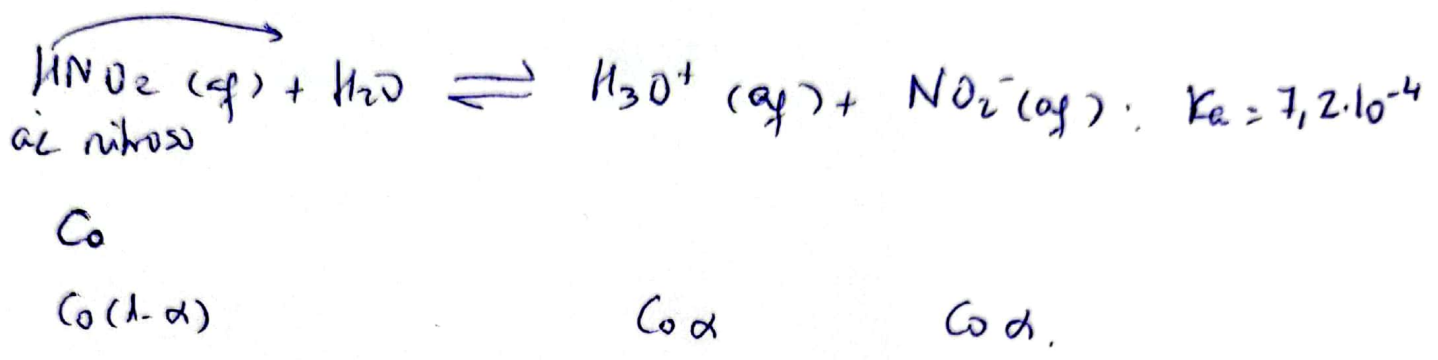 HNO₂ (aq) + H₂O ⇌ H₃O⁺ (aq) + NO₂⁻ (aq) ; Ka = 7,2·10⁻⁴
ác nitroso
C₀
C₀(1-α) C₀α C₀α.